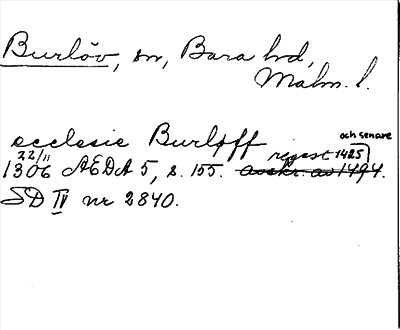 Burlöv, sn, Bara hd,
Malm. l.
och senare
ecclesie Burløff
22/11 regest 1425
1306 AEDA 5, s. 155. avskr. av 1494.
SD IV nr 2840.